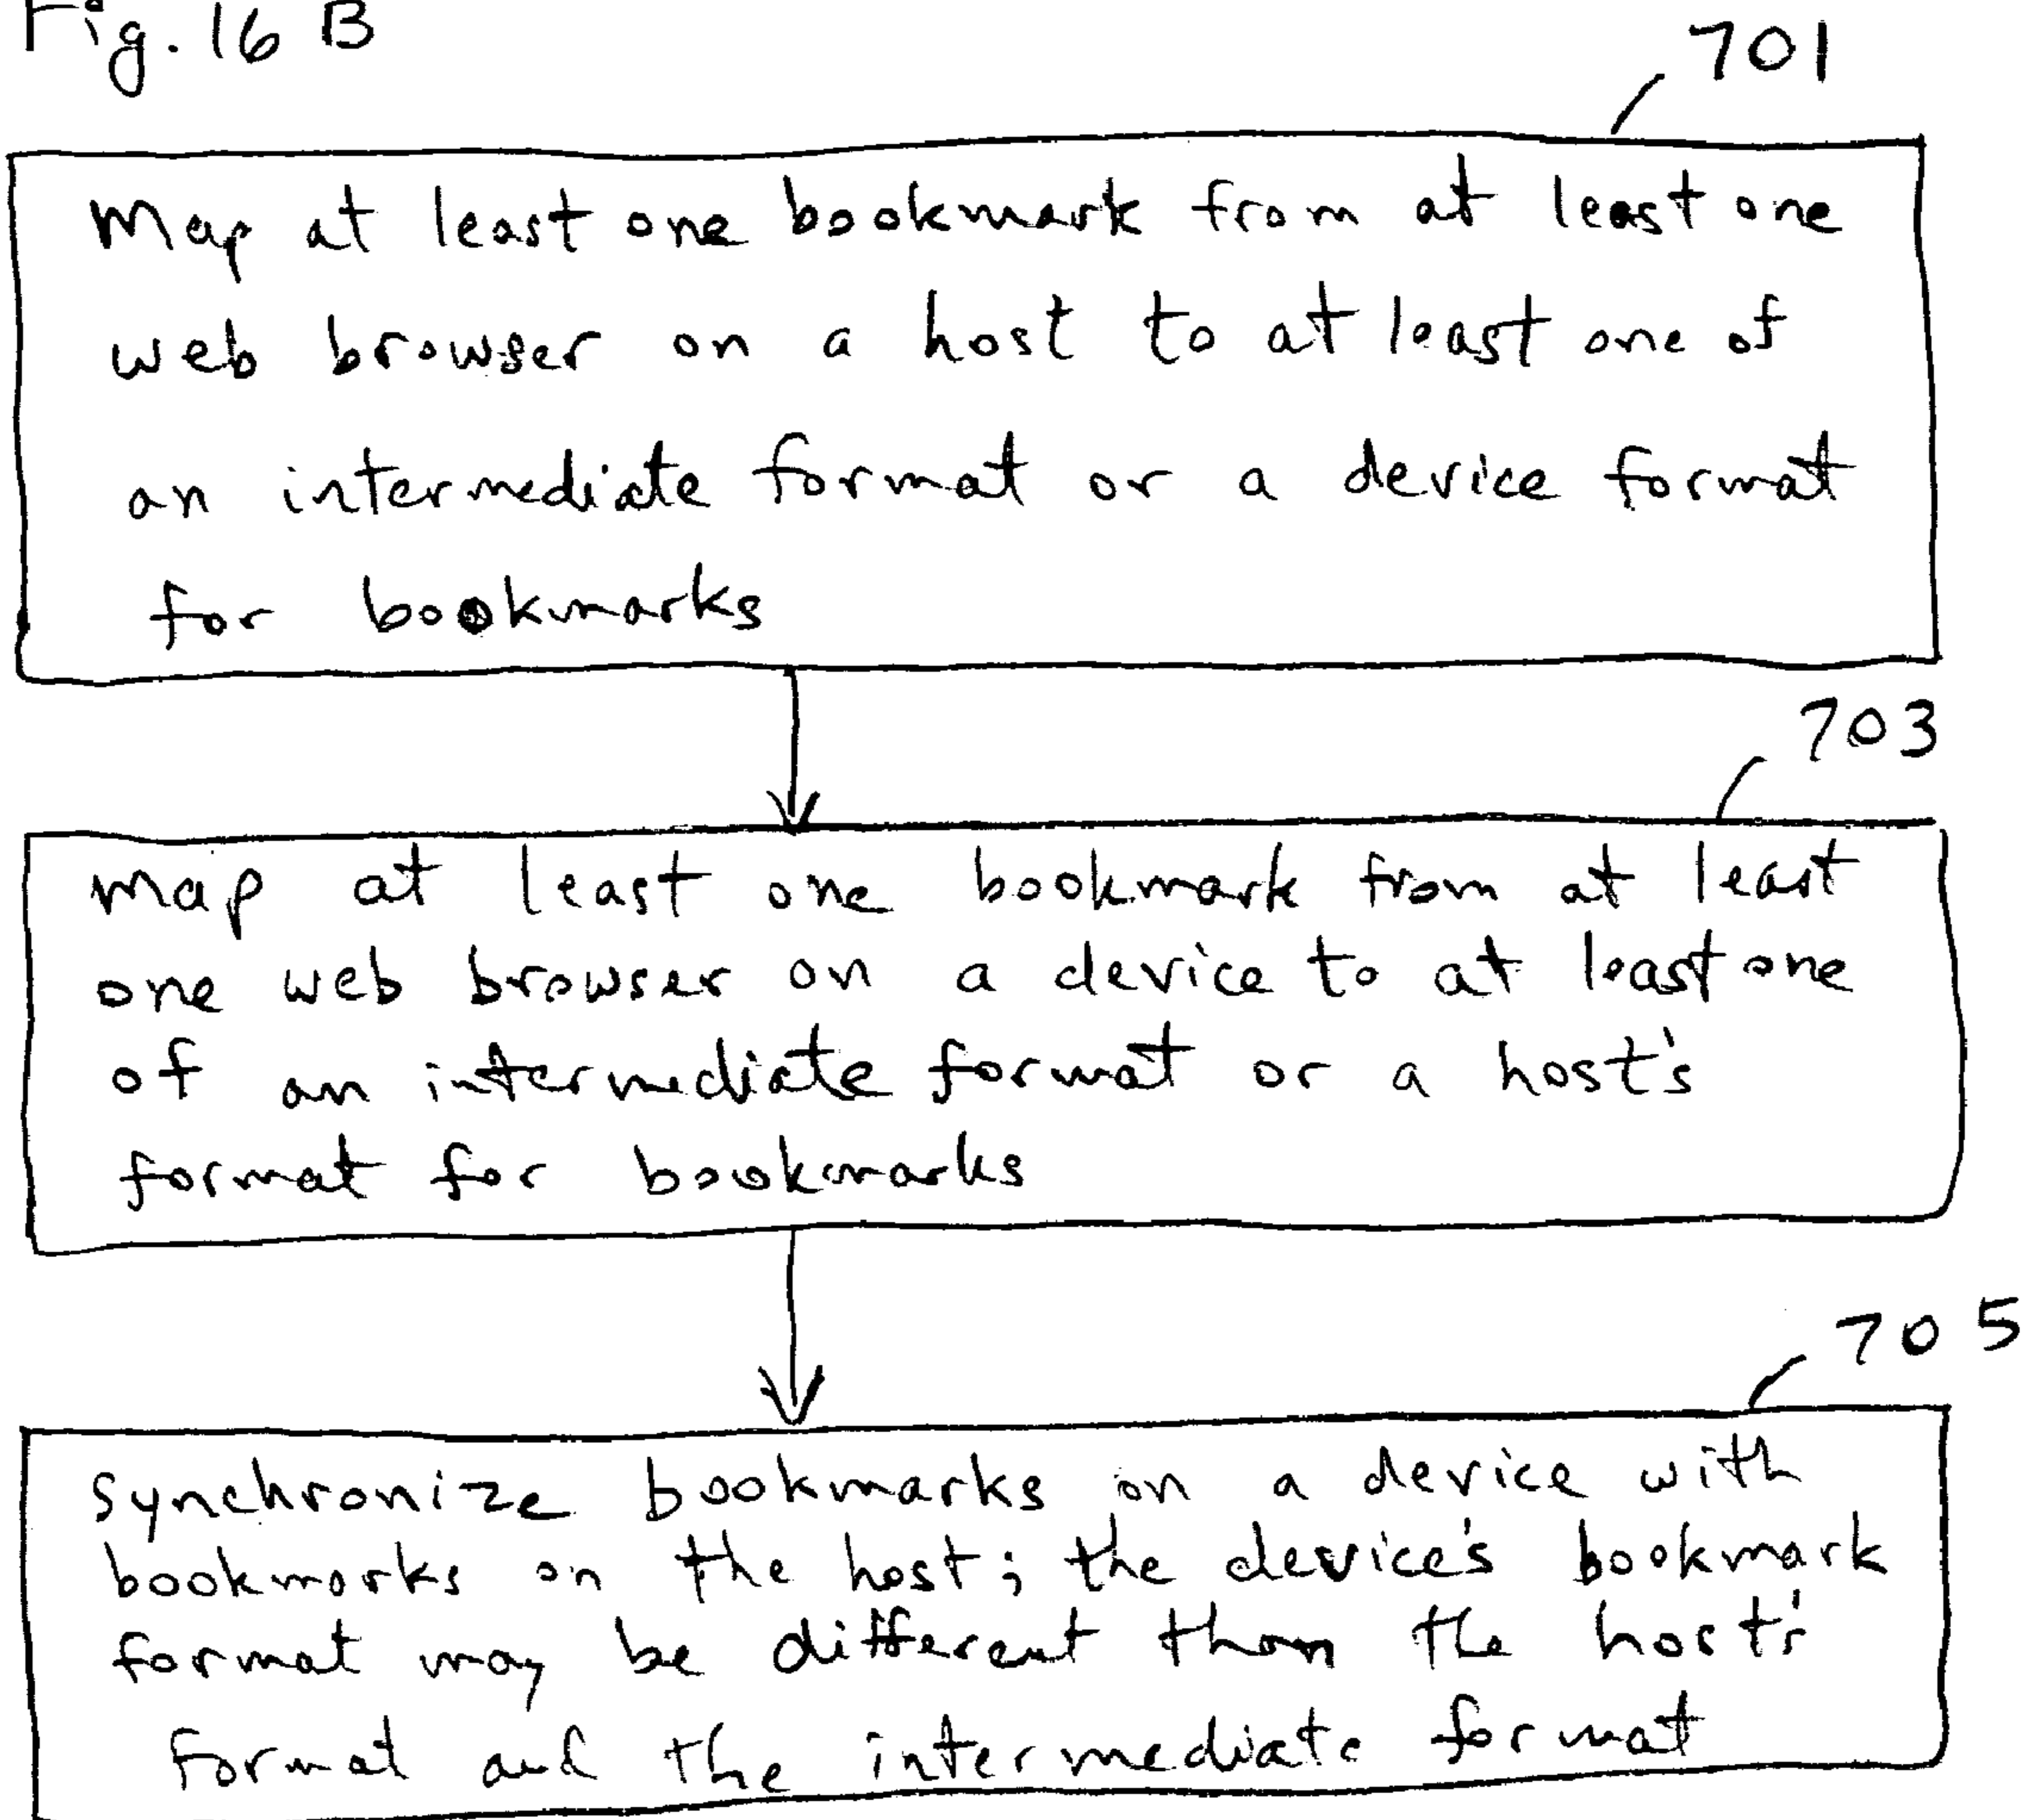 Fig. 16 B
701
Map at least one bookmark from at least one
web browser on a host to at least one of
an intermediate format or a device format
for bookmarks
703
map at least one bookmark from at least
one web browser on a device to at least one
of an intermediate format or a host's
format for bookmarks
705
synchronize bookmarks on a device with
bookmarks on the host; the device's bookmark
format may be different than the host's
format and the intermediate format